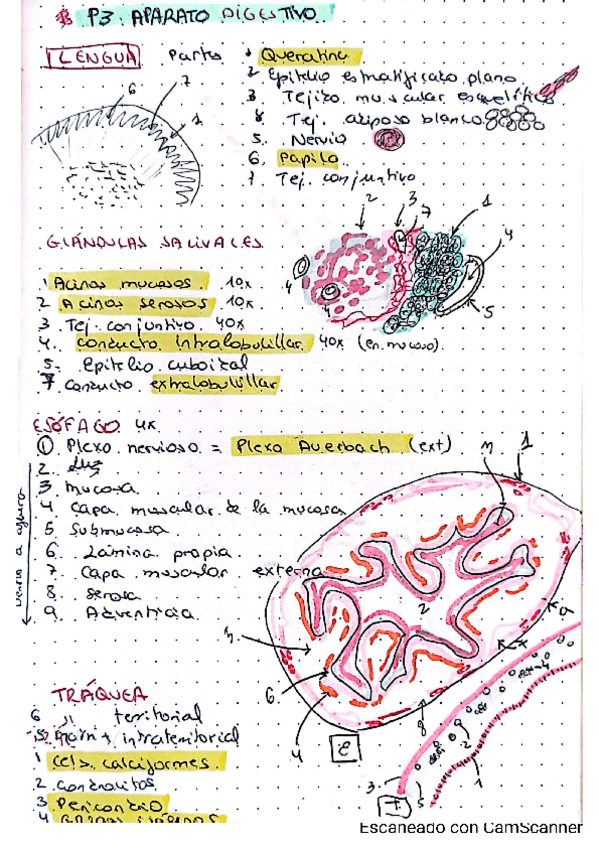 P3. APARATO DIGESTIVO
LENGUA Partes 1 Queratina
2 Epitelio estratificado plano
3. Tejizo muscular esquelético
8. Tej. adiposo blanco
5. Nervio
6. Papila
7 Tej. conjuntivo
6 7 1
GLÁNDULAS SALIVALES
2 3 7 1 4 4 4 5
1 Acinos mucosos. 10x
2 Acinos serosos 10x
3 Tej. conjuntivo. 40x
4. conducto intralobulillar. 40x (en mucoso).
5. Epitelio cuboical
7 conducto extralobulillar
ESÓFAGO 4x
① Plexo nervioso = Plexo Auerbach (ext)
2. Luz
3 mucosa
4 Capa muscular de la mucosa
5 Submucosa
6. Lamina propia.
7. Capa muscular externa
8 Serosa
9. Adventicia
1 2 6 4 8 E
TRÁQUEA
6 territorial
5 intraterritorial
1 Cels. calciformes.
2 condrocitos
3 Pericondrio
4
3 5 2 1 T
Escaneado con CamScanner